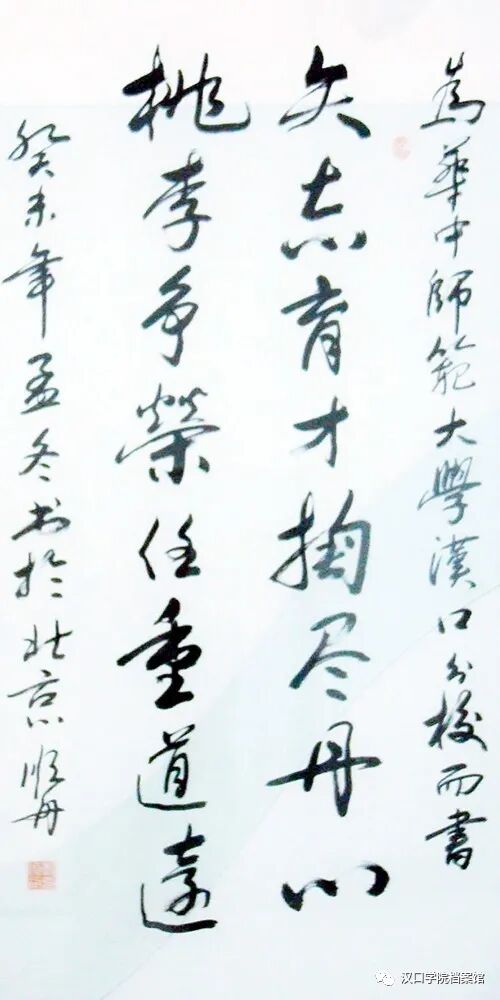 為華中師範大學漢口分校而書
矢志育才掬尽丹心
桃李争榮任重道遠
癸未年孟冬书於北京顺丹
汉口学院档案馆